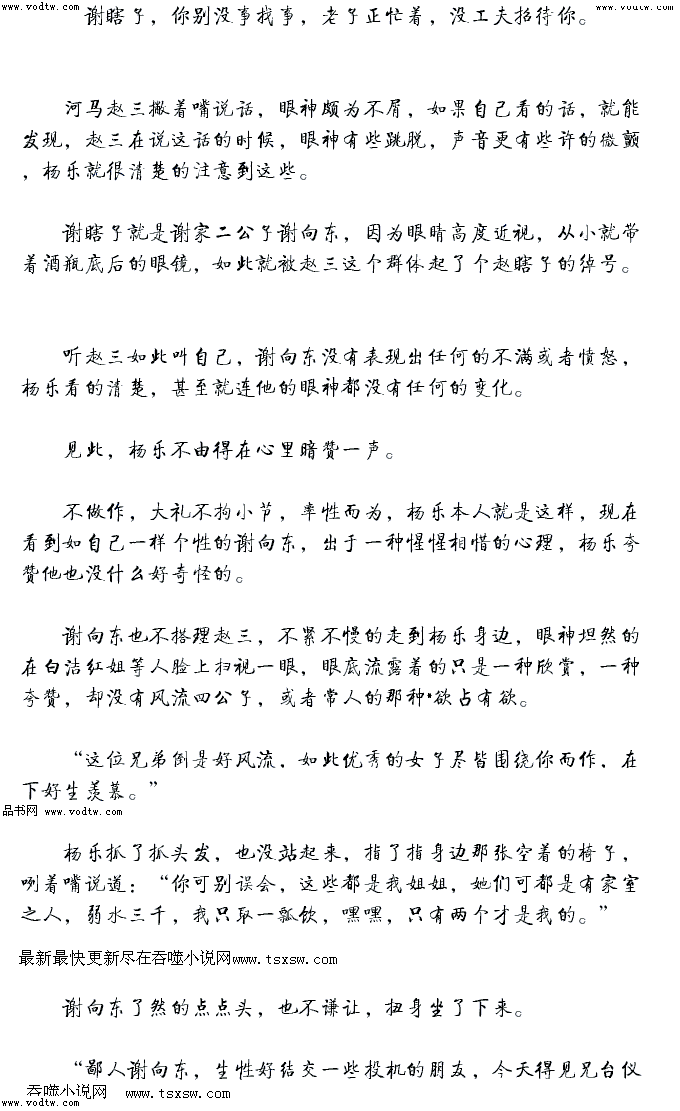 www.vodtw.com www.voutw.com
谢瞎子，你别没事找事，老子正忙着，没工夫招待你。
河马赵三撇着嘴说话，眼神颇为不屑，如果自己看的话，就能
发现，赵三在说这话的时候，眼神有些跳脱，声音更有些许的微颤
，杨乐就很清楚的注意到这些。
谢瞎子就是谢家二公子谢向东，因为眼睛高度近视，从小就带
着酒瓶底后的眼镜，如此就被赵三这个群体起了个赵瞎子的绰号。
听赵三如此叫自己，谢向东没有表现出任何的不满或者愤怒，
杨乐看的清楚，甚至就连他的眼神都没有任何的变化。
见此，杨乐不由得在心里暗赞一声。
不做作，大礼不拘小节，率性而为，杨乐本人就是这样，现在
看到如自己一样个性的谢向东，出于一种惺惺相惜的心理，杨乐夸
赞他也没什么好奇怪的。
谢向东也不搭理赵三，不紧不慢的走到杨乐身边，眼神坦然的
在白洁红姐等人脸上扫视一眼，眼底流露着的只是一种欣赏，一种
夸赞，却没有风流四公子，或者常人的那种*欲占有欲。
“这位兄弟倒是好风流，如此优秀的女子尽皆围绕你而作，在
下好生羡慕。”
品书网 www.vodtw.com
杨乐抓了抓头发，也没站起来，指了指身边那张空着的椅子，
咧着嘴说道：“你可别误会，这些都是我姐姐，她们可都是有家室
之人，弱水三千，我只取一瓢饮，嘿嘿，只有两个才是我的。”
最新最快更新尽在吞噬小说网www.tsxsw.com
谢向东了然的点点头，也不谦让，扭身坐了下来。
“鄙人谢向东，生性好结交一些投机的朋友，今天得见兄台仪
吞噬小说网 www.tsxsw.com
www.vodtw.com